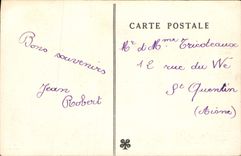 CARTE POSTALE
Bons souvenirs
Jean
Robert
Mr et Mme Trucoteaux
12 rue du We
St Quentin
(Aisne)